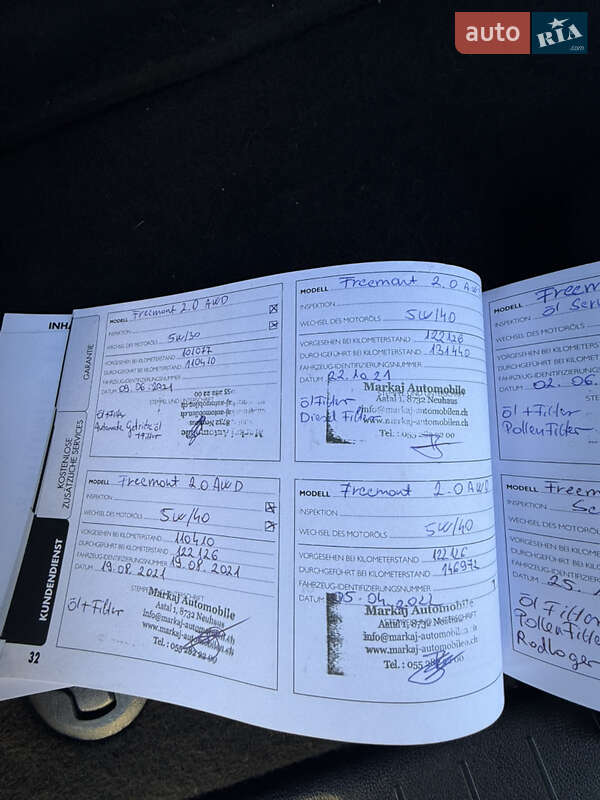 auto RIA .com
INHA
GARANTIE
KOSTENLOSE ZUSÄTZLICHE SERVICES
KUNDENDIENST
32
MODELL Freemont 2.0 AWD
INSPEKTION
WECHSEL DES MOTORÖLS 5W/30
VORGESEHEN BEI KILOMETERSTAND 101077
DURCHGEFÜHRT BEI KILOMETERSTAND 110410
FAHRZEUG-IDENTIFIZIERUNGSNUMMER
DATUM 09.06.2021
Öl Filter
MODELL Freemont 2.0 AWD
INSPEKTION
WECHSEL DES MOTORÖLS 5W/40
VORGESEHEN BEI KILOMETERSTAND 122126
DURCHGEFÜHRT BEI KILOMETERSTAND 131440
FAHRZEUG-IDENTIFIZIERUNGSNUMMER
DATUM 22.10.21
Markaj Automobile
Astal 1, 8732 Neuhaus
info@markaj-automobilen.ch
www.markaj-automobilen.ch
Öl Filter
Diesel Filter
MODELL Freemont 2.0 AWD
INSPEKTION
WECHSEL DES MOTORÖLS 5W/40
VORGESEHEN BEI KILOMETERSTAND 110410
DURCHGEFÜHRT BEI KILOMETERSTAND 122126
FAHRZEUG-IDENTIFIZIERUNGSNUMMER 19.08.2021
DATUM 19.08.2021
Markaj Automobile
Astal 1, 8732 Neuhaus
info@markaj-automobilen.ch
www.markaj-automobilen.ch
Tel. : 055 282 22 00
Öl + Filter
MODELL Freemont 2.0 AWD
INSPEKTION
WECHSEL DES MOTORÖLS 5W/40
VORGESEHEN BEI KILOMETERSTAND 122126
DURCHGEFÜHRT BEI KILOMETERSTAND 146972
FAHRZEUG-IDENTIFIZIERUNGSNUMMER
DATUM 05.04.2022
Markaj Automobile
Astal 1, 8732 Neuhaus
info@markaj-automobilen.ch
www.markaj-automobilen.ch
MODELL Freem
INSPEKTION Öl Serv
WECHSEL DES MOTORÖLS
VORGESEHEN BEI KILOMETER
DURCHGEFÜHRT BEI KILOM
FAHRZEUG-IDENTIFIZIERUNG
DATUM 02.06.
Öl + Filter
Pollen Filter
MODELL Freem
INSPEKTION
WECHSEL DES MOTORÖLS
VORGESEHEN BEI KILO
DURCHGEFÜHRT BEI K
FAHRZEUG-IDENTIFIZI
DATUM 25.
Öl Filter
Pollen Filter